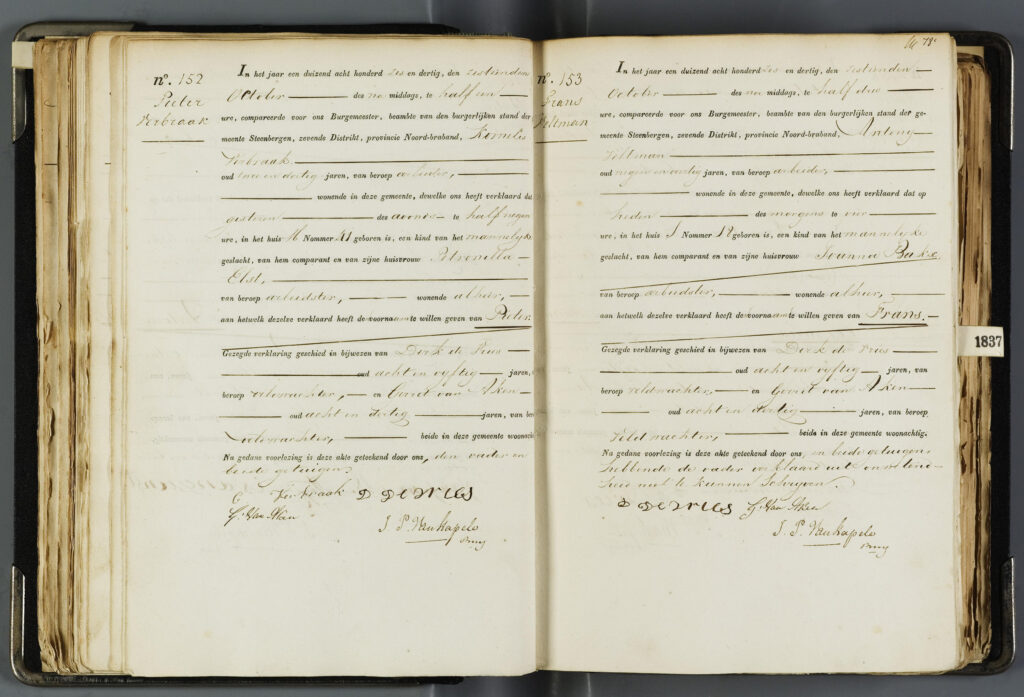 nº. 152
Pieter
Verbraak
In het jaar een duizend acht honderd zes en dertig, den zestienden
October des na middags, te half een
ure, compareerde voor ons Burgemeester, beambte van den burgerlijken stand der
meente Steenbergen, zevende Distrikt, provincie Noord-braband, Kornelis
Verbraak
oud twee en dertig jaren, van beroep arbeider,
wonende in deze gemeente, dewelke ons heeft verklaard dat
gisteren des avonds te half negen
ure, in het huis H Nommer 41 geboren is, een kind van het mannelijke
geslacht, van hem comparant en van zijne huisvrouw Petronella
Elst,
van beroep arbeidster, wonende alhier,
aan hetwelk dezelve verklaard heeft de voornaam te willen geven van Pieter
Gezegde verklaring geschied in bijwezen van Dirk de Vries
oud acht en vijftig jaren,
beroep veldwachter, en Gerrit van Aken
oud acht en dertig jaren, van
Veldwachter, beide in deze gemeente woonacht
Na gedane voorlezing is deze akte geteekend door ons, den vader en
beide getuigen.
C Verbraak D DE VRIES
G. Van Aken
J. P. Van Kapele
Burg
Nº. 153
Frans
Veltman
In het jaar een duizend acht honderd zes en dertig, den zestienden
October des na middags, te half drie
ure, compareerde voor ons Burgemeester, beambte van den burgerlijken stand der ge-
meente Steenbergen, zevende Distrikt, provincie Noord-braband, Antony
Veltman
oud negen en veertig jaren, van beroep arbeider,
wonende in deze gemeente, dewelke ons heeft verklaard dat op
heden des morgens te vier
ure, in het huis J Nommer 12 geboren is, een kind van het mannelijke
geslacht, van hem comparant en van zijne huisvrouw Joanna Bakx,
van beroep arbeidster, wonende alhier,
aan hetwelk dezelve verklaard heeft de voornaam te willen geven van Frans.
Gezegde verklaring geschied in bijwezen van Dirk de Vries
oud acht en vijftig jaren, van
beroep veldwachter, en Gerrit van Aken
oud acht en dertig jaren, van beroep
Veldwachter, beide in deze gemeente woonachtig.
Na gedane voorlezing is deze akte geteekend door ons, en beide getuigen
hebbende de vader verklaard uit onkunde
niet te kunnen schrijven.
D DE VRIES G. Van Aken
J. P. Van Kapele
Burg
1837